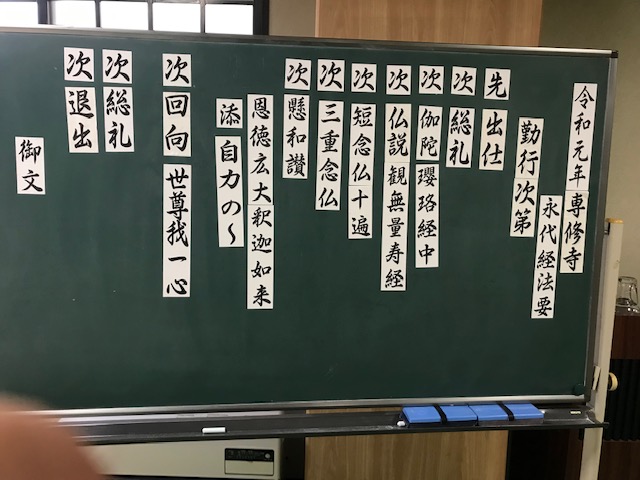 令和元年専修寺
永代経法要
勤行次第
先 出仕
次 総礼
次 伽陀 瓔珞経中
次 仏説観無量寿経
次 短念仏十遍
次 三重念仏
次 懸和讃
恩徳広大釈迦如来
添 自力の〜
次 回向 世尊我一心
次 総礼
次 退出
御文